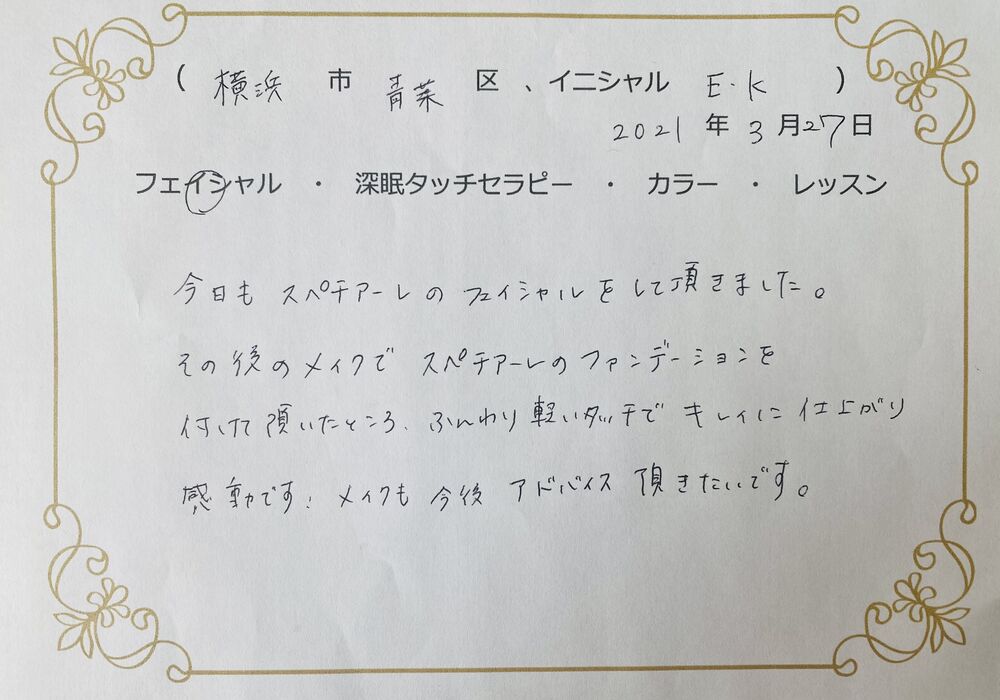 ( 横浜 市 青葉 区 、イニシャル E・K )
2021 年 3 月 27 日
フェイシャル ・ 深眠タッチセラピー ・ カラー ・ レッスン
今日も スペチアーレの フェイシャルをして頂きました。
その後のメイクで スペチアーレのファンデーションを
付けて頂いたところ、ふんわり軽いタッチで キレイに仕上がり
感動です! メイクも 今後 アドバイス 頂きたいです。